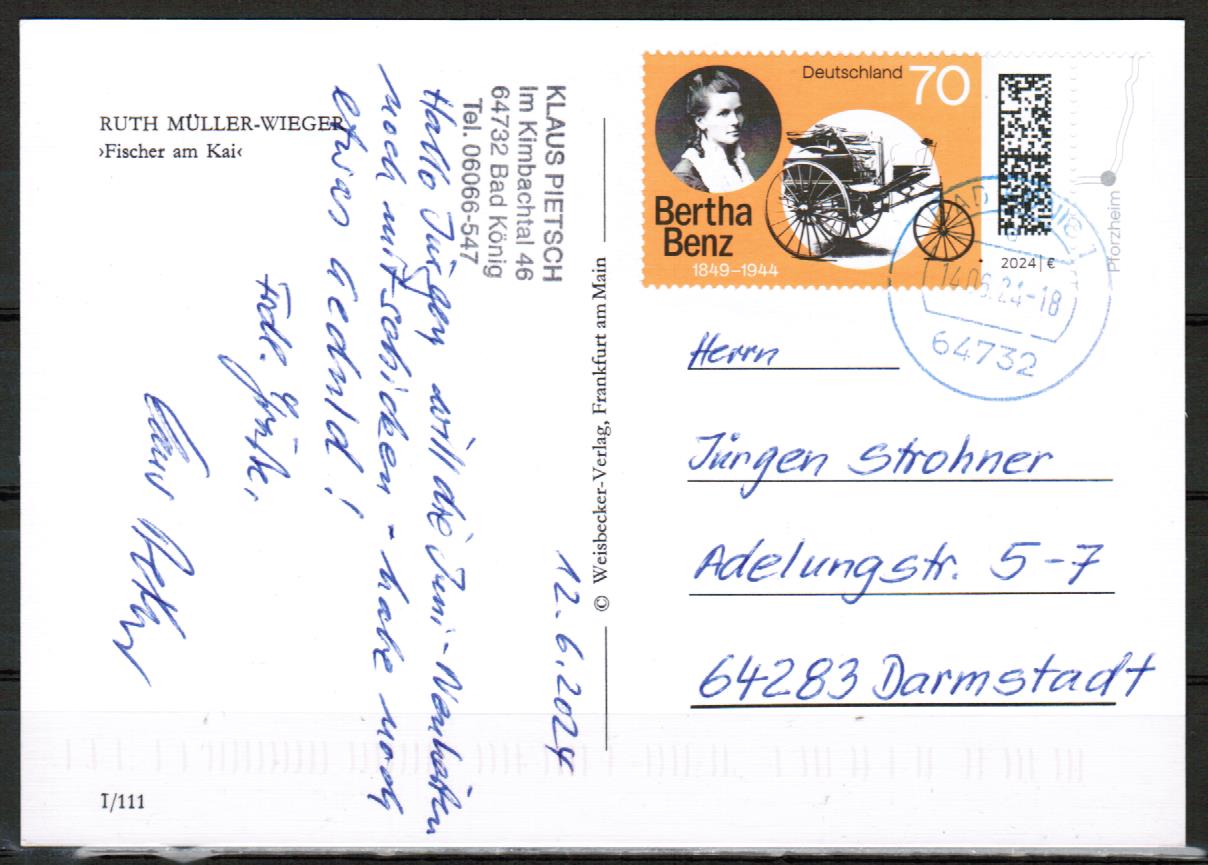 RUTH MÜLLER-WIEGER
›Fischer am Kai‹
KLAUS PIETSCH
Im Kimbachtal 46
64732 Bad König
Tel. 06066-547
12.6.2024
Hallo Jürgen, will die Juni-Neuheiten
noch mitschicken - habe noch
etwas Geduld!
Frdl. Grüße,
© Weisbecker-Verlag, Frankfurt am Main
Deutschland 70
Bertha
Benz
1849–1944
2024 | €
Pforzheim
14.06.24-18
64732
Herrn
Jürgen Strohner
Adelungstr. 5-7
64283 Darmstadt
I/111